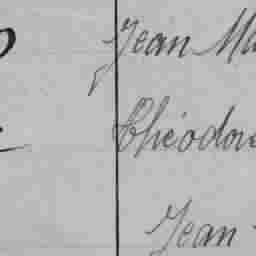 Jean Ma
Théodore
Jean